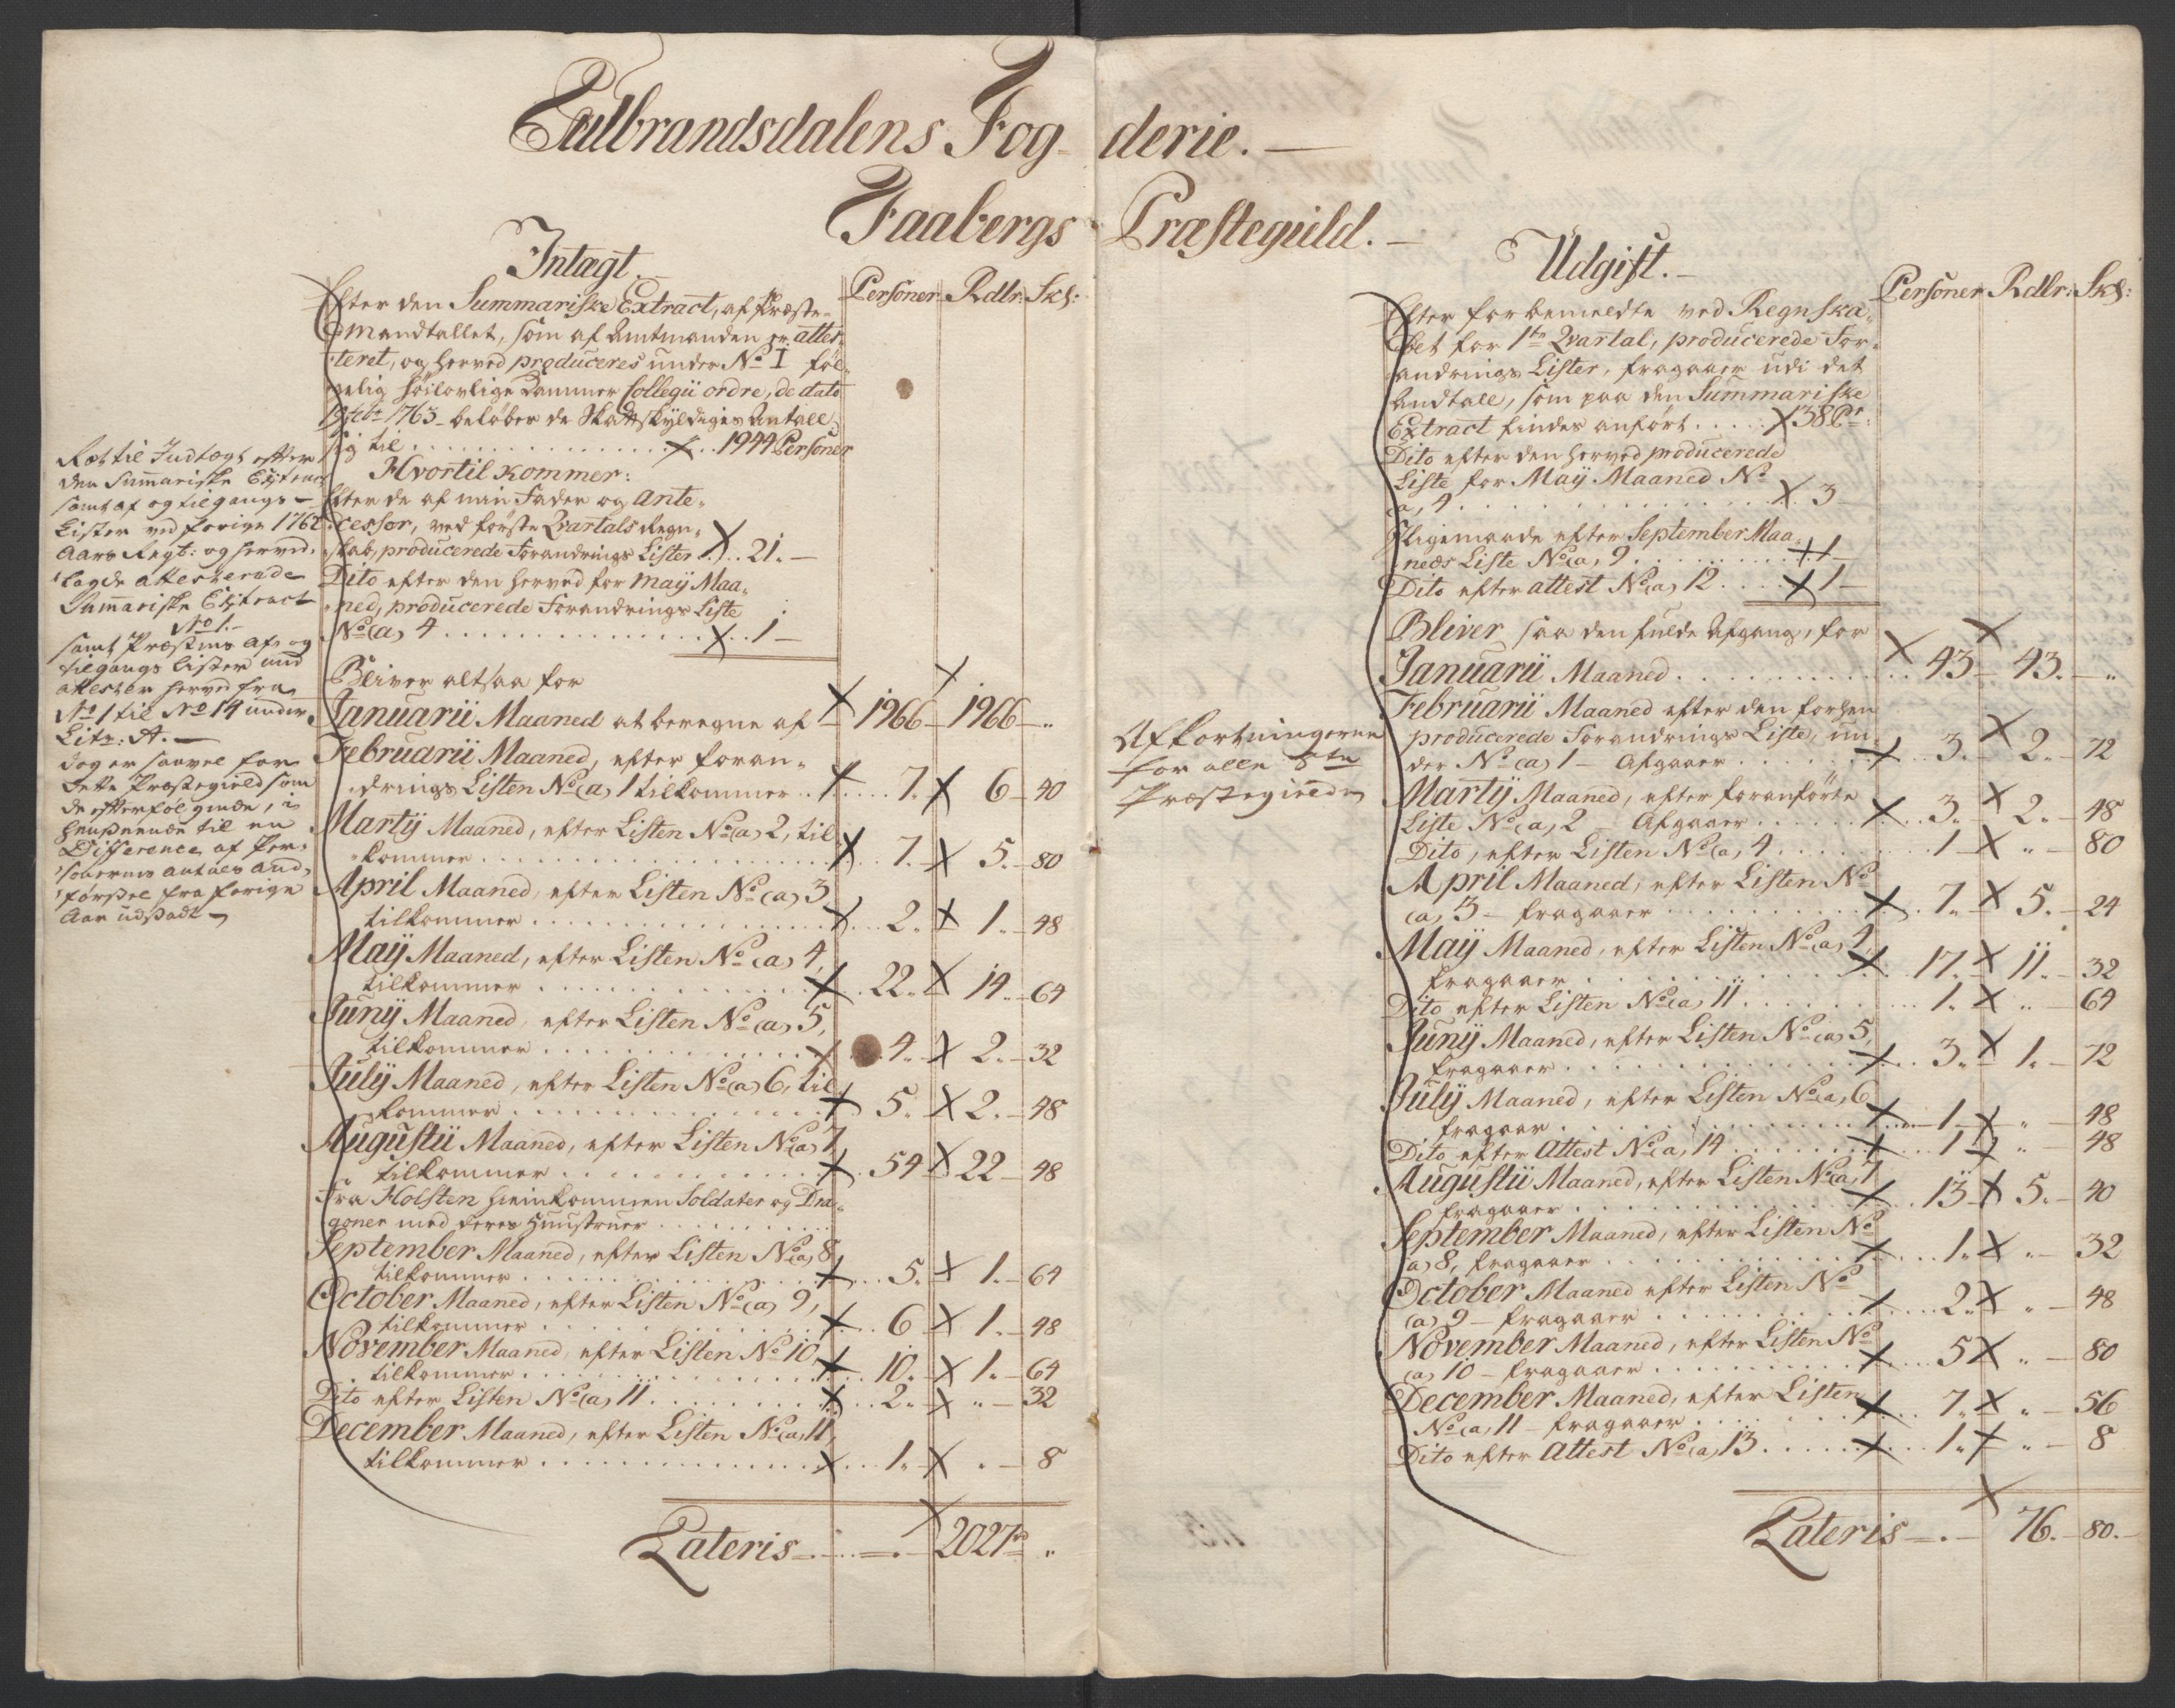 Gulbrandsdalens Fog- derie. —
Faabergs Præstegield. —
Intægt.
Personer Rdlr: Sk:
Efter den Summariske Extract, af Præste-
mandtallet, som af Amtmanden er attes-
teret, og herved produceres under No 1 føl-
gelig høilovlige Cammer Collegii ordre, de dato
1763 beløber de Skattskyldiges Antall
sig til . . . . 1944 Personer
Hvortil kommer:
Efter de af min Fader og Ante-
cessor, ved første Qvartals Regn-
skab, producerede Forandrings Lister . . 21. —
Dito efter den herved for Maij Maa-
ned, producerede Forandrings Liste
No (a) 4 . . . . 1 —
Bliver altsaa for
Januarii Maaned at beregne af 1966 — 1966 — "
Februarii Maaned, efter foran-
drings Listen No (a) 1 tilkommer . . 7. 6 — 40
Martij Maaned, efter Listen No (a) 2, til-
kommer . . . . 7. 5. — 80
April Maaned, efter Listen No (a) 3
tilkommer . . . . 2. 1. — 48
Maij Maaned, efter Listen No (a) 4,
tilkommer . . . . 22. 14. — 64
Junij Maaned, efter Listen No (a) 5,
tilkommer . . . . 4. 2. — 32
Julij Maaned, efter Listen No (a) 6, til
kommer . . . . 5. 2. — 48
Augustii Maaned, efter Listen No (a) 7
tilkommer . . . . 54 22 — 48
Fra Holsten hieimkommen Soldater og Dra-
goner med deres Hustruer . . . .
September Maaned, efter Listen No (a) 8
tilkommer . . . . 5. 1. — 64
October Maaned, efter Listen No (a) 9,
tilkommer . . . . 6 1. — 48
November Maaned, efter Listen No 10,
tilkommer . . . . 10. 1. — 64
Dito efter Listen No (a) 11 . . . . 2. " — 32
December Maaned, efter Listen No (a) 11,
tilkommer . . . . 1. . — 8
Lateris — . — 2027 "
Ret til Indtægt efter
den Summariske Extract
samt af og tilgangs-
Lister ved forige 1762
Aars Regt: og herved
lagde attesterede
Summariske Extract
No 1. —
samt Præstens af- og
tilgangs Lister med
attester herved fra
No 1 til No 14 under
Litr: A. —
dog er saavel for
dette Præstegield som
de efterfølgende, i
henseende til en
Difference af Per-
sonernes antales And-
førsel fra forige
Aar udsadt —
Udgift. —
Personer Rdlr: Sk:
Efter forbemeldte ved Regnska-
bet for 1te Qvartal, producerede For-
andrings Lister, fragaaer udi det
Andtall, som paa den Summariske
Extract findes anført . . . . 38 Pr:
Dito efter den herved producerede
Liste for Maij Maaned No
(a) 4 . . . . 3
Ligemaade efter September Maa-
neds Liste No (a) 9 . . . . 1 —
Dito efter attest No (a) 12 . . . . 1 —
Bliver saa den fulde Afgang, for
Januarii Maaned . . . . 43 — 43. — "
Februarii Maaned efter den forhen
producerede Forandrings Liste, un-
der No (a) 1 — Afgaaer . . . . 3. 2. — 72
Martij Maaned, efter foranførte
Liste No (a) 2 — Afgaaer . . . . 3. 2. — 48
Dito, efter Listen No (a) 4 . . . . 1 " — 80
April Maaned, efter Listen No
(a) 3 — fragaaer . . . . 7. 5. — 24
Maij Maaned, efter Listen No (a) 4,
fragaaer . . . . 17. 11. — 32
Dito efter Listen No (a) 11 . . . . 1. " — 64
Junij Maaned, efter Listen No (a) 5,
fragaaer . . . . 3. 1. — 72
Julij Maaned, efter Listen No (a) 6
fragaar . . . . 1 " — 48
Dito efter Attest No (a) 14 . . . . 1 " — 48
Augustii Maaned, efter Listen No (a) 7
fragaaer . . . . 13 5. — 40
September Maaned, efter Listen No
(a) 8, fragaaer . . . . 1. " — 32
October Maaned efter Listen No
(a) 9 — fragaaer . . . . 2. " — 48
November Maaned, efter Listen No
(a) 10 — fragaaer . . . . 5 " — 80
December Maaned, efter Listen
No (a) 11 — fragaaer . . . . 7. " — 56
Dito efter Attest No (a) 13 . . . . 1. " — 8
Lateris — . — 76. — 80. —
Afkortningerne
for alle 8te
Præstegielde